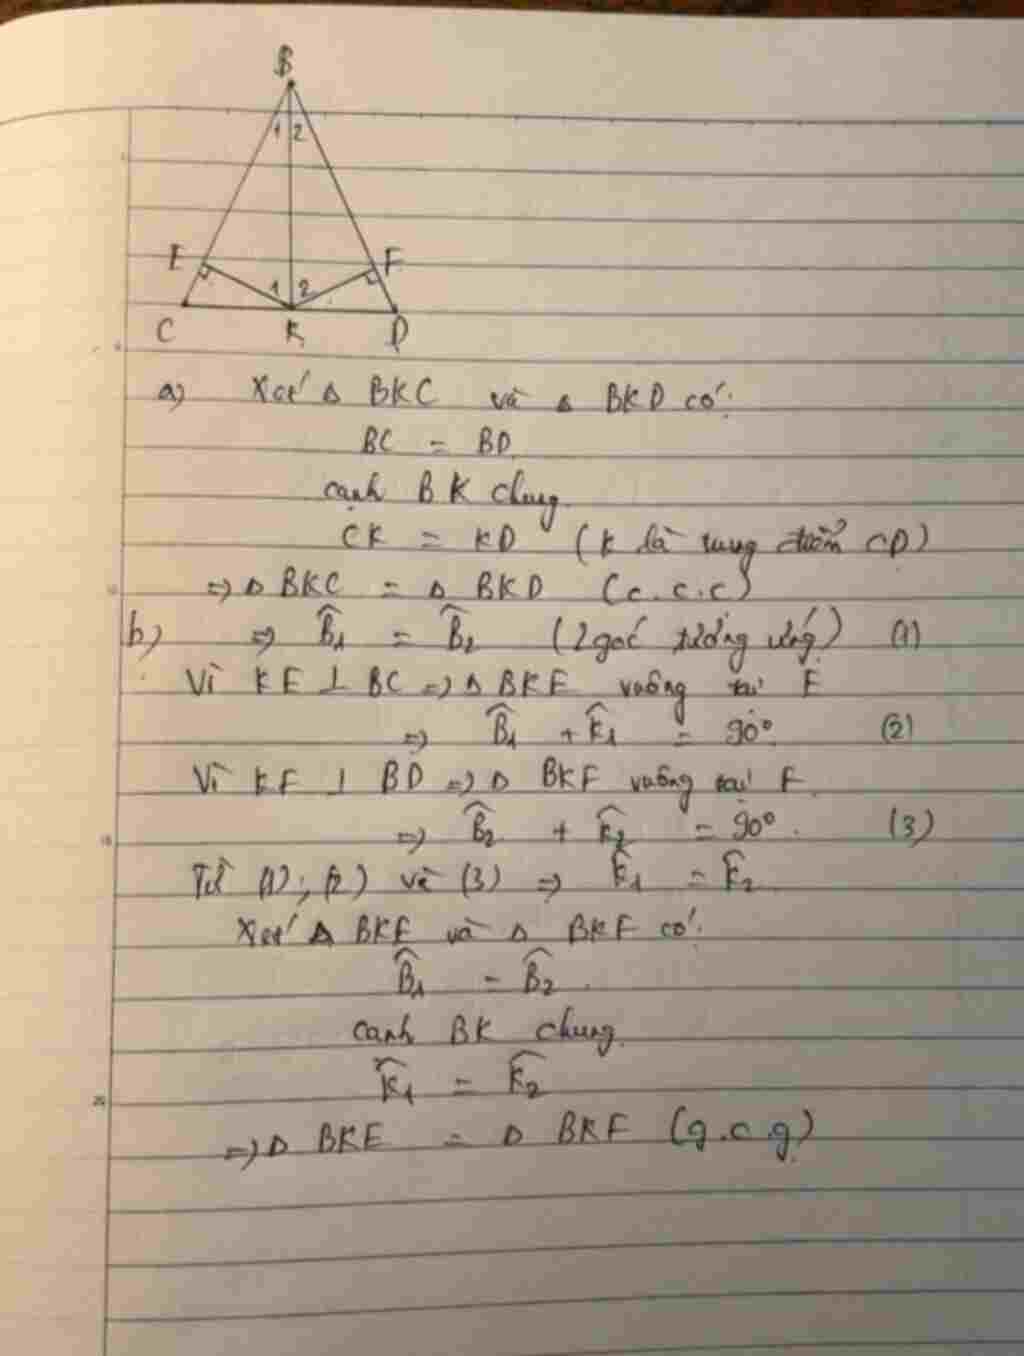 B
1 2
E F
1 2
C K D
a) Xét Δ BKC và Δ BKD có:
BC = BD
cạnh BK chung
CK = KD (K là trung điểm CD)
=> Δ BKC = Δ BKD (c.c.c)
b) => B̂₁ = B̂₂ (2 góc tương ứng) (1)
Vì KE ⊥ BC => Δ BKE vuông tại E
=> B̂₁ + K̂₁ = 90° (2)
Vì KF ⊥ BD => Δ BKF vuông tại F
=> B̂₂ + K̂₂ = 90°. (3)
Từ (1); (2) và (3) => K̂₁ = K̂₂
Xét Δ BKE và Δ BKF có:
B̂₁ = B̂₂.
cạnh BK chung
K̂₁ = K̂₂
=> Δ BKE = Δ BKF (g.c.g)